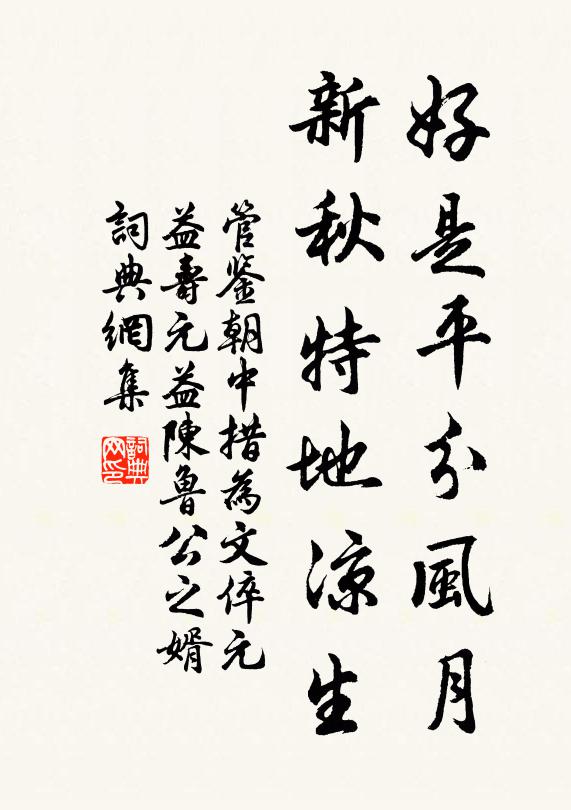 好是平分風月
新秋特地涼生
管鉴朝中措為文倅元
益壽元益陳魯公之婿
詞典網集
詞典網印